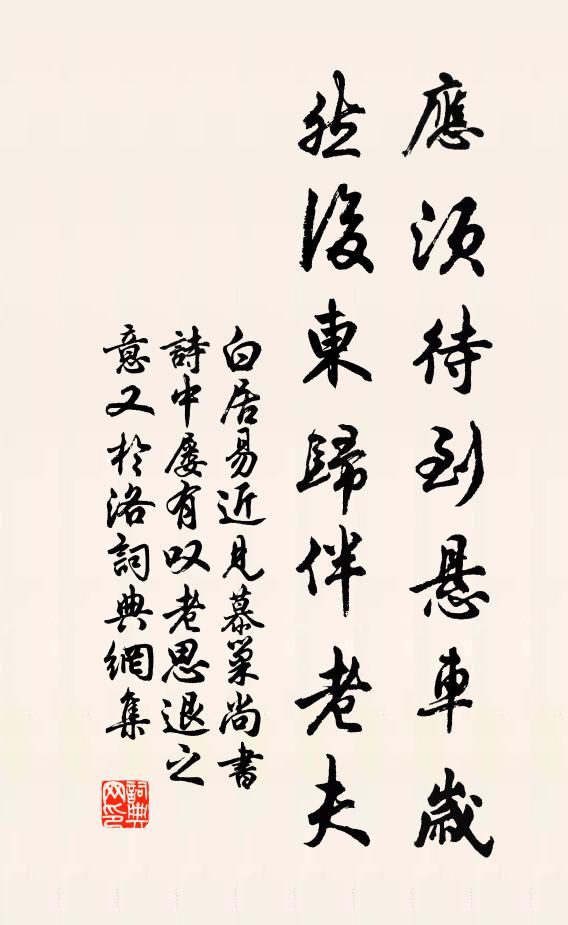 應須待到懸車歲
然後東歸伴老夫
白居易近見慕巢尚書
詩中屢有叹老思退之
意又於洛詞典網集
詞典网印